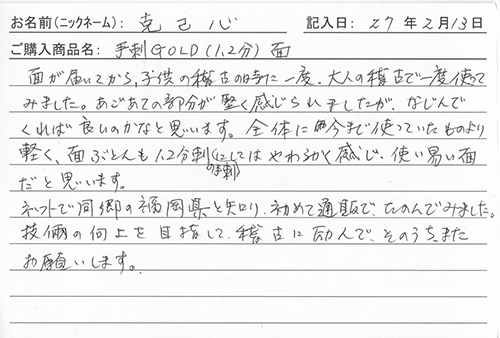 お名前(ニックネーム): 克己心 記入日: 27年2月13日
ご購入商品名: 手刺GOLD(1.2分)面
面が届いてから、子供の稽古の時に一度、大人の稽古で一度使って
みました。あごあての部分が堅く感じられましたが、なじんで
くれば良いのかなと思います。全体に今まで使っていたものより
軽く、面ぶとんも1.2分刺にしてはやわらかく感じ、使い易い面
の手刺
だと思います。
ネットで同郷の福岡県と知り、初めて通販で、たのんでみました。
技倆の向上を目指して、稽古に励んで、そのうちまた
お願いします。